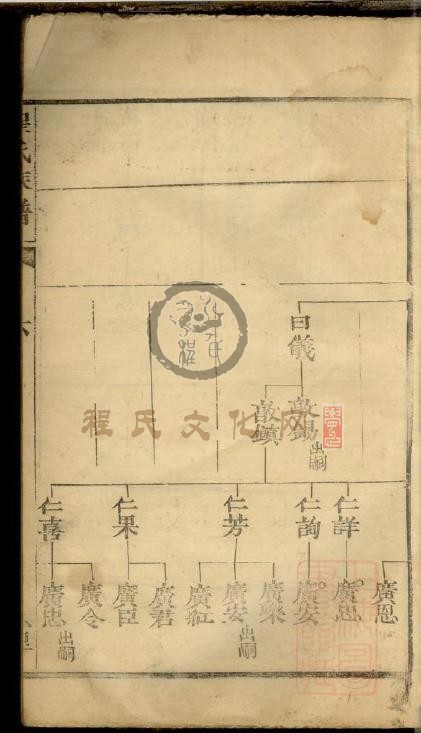 曰儀
敦錫 出嗣
敦鎮
仁詳
仁詢
仁芳
仁果
仁喜
廣恩
廣忠
廣安
廣樂
廣宏 出嗣
廣紅
廣君
廣臣
廣令
廣忠 出嗣
程氏族譜
六
程氏文化网